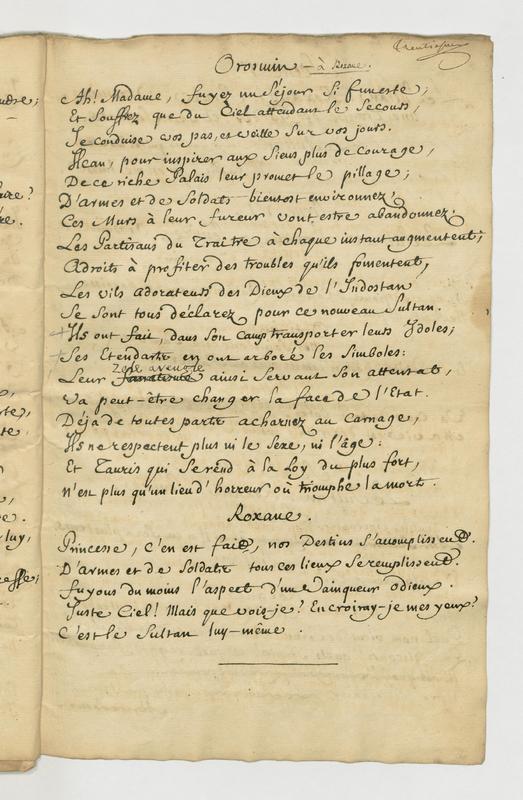 Orosmin - à Roxane.
Ah! Madame, fuyez un Séjour Si funeste;
Et Souffrez que du Ciel attendant le Secours,
Je conduise vos pas, et veille Sur vos jours.
pour inspirer aux Siens plus de courage,
De ce riche Palais leur promet le pillage;
D'armes et de Soldats bientost environnez,
Ces Murs à leur fureur vont estre abandonnez.
Les Partisans du Traitre à chaque instant augmentent;
Adroits à profiter des troubles qu'ils fomentent,
Les vils adorateurs des Dieux de l'Indostan
Se sont tous déclarez pour ce nouveau Sultan.
+ Ils ont fait, dans Son Camp transporter leurs Ydoles;
+ Ses Etendarts en ont arboré les Simboles:
Zele aveugle
Leur ainsi Servant Son attentat,
Va peut-être changer la face de l'Etat.
Déja de toutes parts acharnez au Carnage,
Ils ne respectent plus ni le Sexe, ni l'âge:
Et Tauris qui Se rend à la Loy du plus fort,
N'est plus qu'un lieu d'horreur où triomphe la mort.
Roxane.
Princesse, C'en est fait, nos Destins S'accomplissent.
D'Armes et de Soldats tous ces lieux Se remplissent.
Fuyons du moins l'aspect d'un Vainqueur odieux.
Juste Ciel! Mais que vois-je? En croiray-je mes yeux?
C'est le Sultan luy-même.
luy,